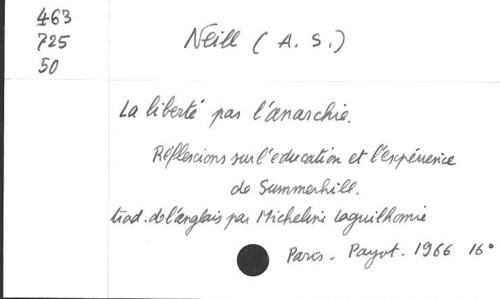 463
725
50
Neill (A. S.)
La liberté pas l'anarchie.
Réflexions sur l'education et l'expérience
de Summerhill.
trad. de l'anglais par Micheline Laguilhomie
Paris. Payot. 1966 16°